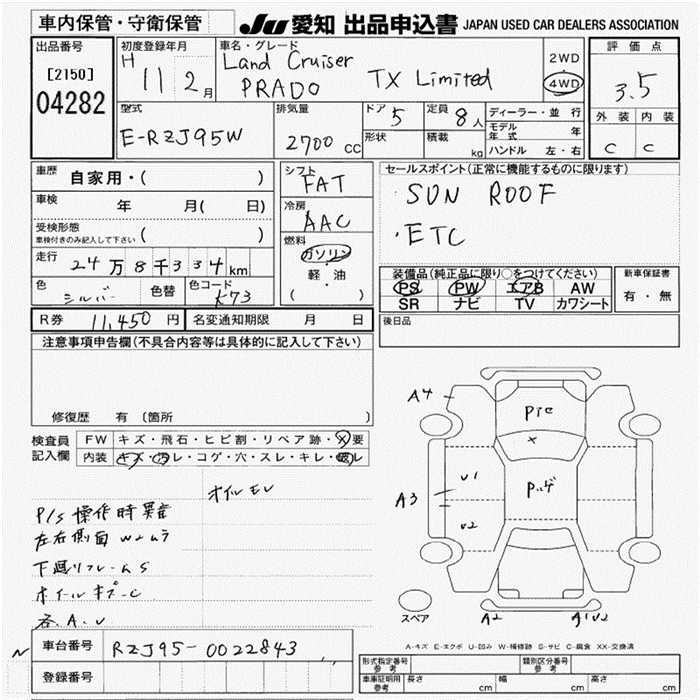 車内保管・守衛保管
JU 愛知 出品申込書 JAPAN USED CAR DEALERS ASSOCIATION
出品番号
[2150]
04282
初度登録年月
H 11 2月
車名・グレード
Land Cruiser
PRADO TX Limited
2WD
4WD
評価点
3.5
外装 内装
C C
型式
E-RZJ95W
排気量
2700 CC
ドア 5
形状
定員 8人
積載 kg
ディーラー・並行
モデル年式 年
ハンドル 左・右
車歴 自家用・( )
車検 年 月( 日)
受検形態
車検付きのみ記入して下さい ( )
走行 24万8千334km
色 シルバー 色替 色コード K73
シフト
FAT
冷房
AAC
燃料
ガソリン
軽・油
( )
セールスポイント(正常に機能するものに限ります)
・SUN ROOF
・ETC
装備品(純正品に限り○をつけてください)
PS PW エアB AW
SR ナビ TV カワシート
新車保証書
有・無
後日品
R券 11,450円 名変通知期限 月 日
注意事項申告欄(不具合内容等は具体的に記入して下さい)
修復歴 有 〔箇所
検査員
記入欄
FW キズ・飛石・ヒビ割・リペア跡・X要
内装 キズ・汚レ・コゲ・穴・スレ・キレ・破レ
オイルモレ
P/S操作時異音
左右側面 W2ムラ
下廻りフレームS
各A.U
A4
A3
U1
U2
A2
A1U2
スペア
A-キズ E-エクボ U-凹み W-補修跡 S-サビ C-腐食 XX-交換済
車台番号 RZJ95-0022843
登録番号
形式指定番号
参考
類別区分番号
参考
車庫証明用
参考
長さ cm 幅 cm 高さ cm